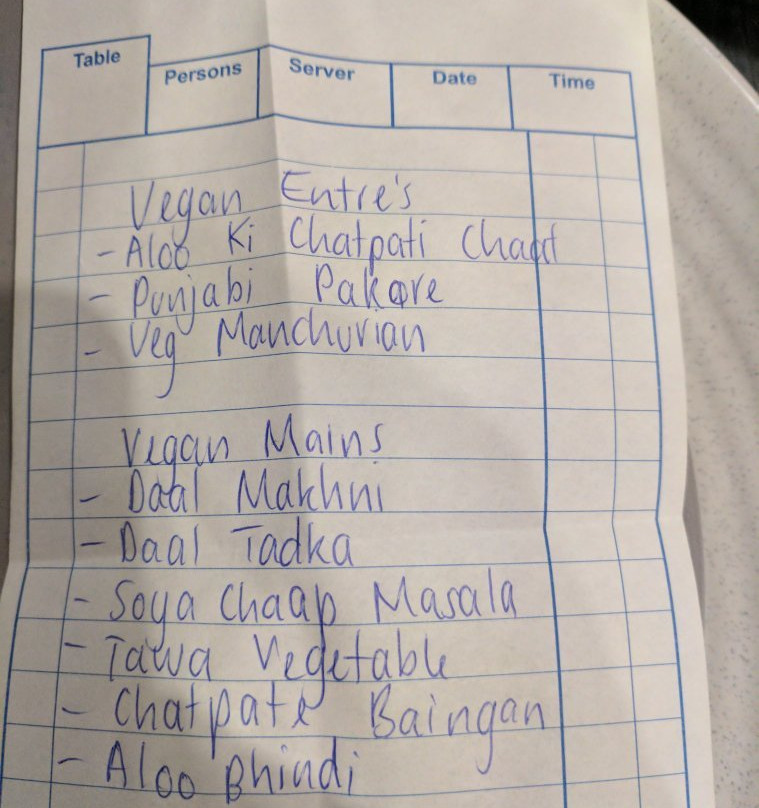 Table Persons Server Date Time
Vegan Entre's
- Aloo Ki Chatpati Chaat
- Punjabi Pakore
- Veg Manchurian
Vegan Mains
- Daal Makhni
- Daal Tadka
- Soya Chaap Masala
- Tawa Vegetable
- Chatpate Baingan
- Aloo Bhindi